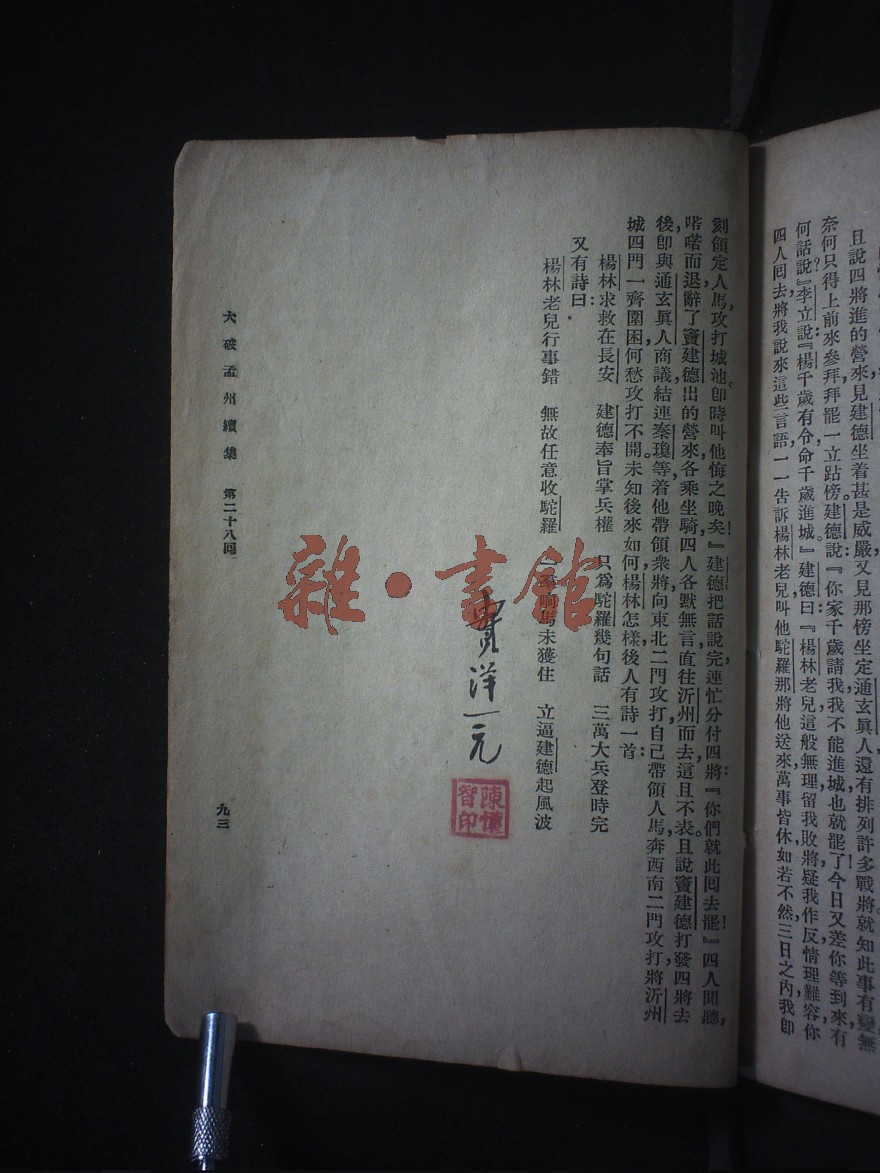 且說四將進的營來見建德坐着甚是威嚴，又見那傍坐定通玄眞人還有排列許多戰將，就知此事有變，無
奈何只得上前來參拜，拜罷一立跕傍。建德說：『你家千歲請我，我不能進城也就罷了，今日又差你等到來有
何話說？』李立說：『楊千歲有令，命千歲進城。』建德曰：『楊林老兒這般無理，留我敗將，疑我作反，情理難容，你
四人回去將我說來這些言語，一一告訴楊林老兒，叫他駝羅那將他送來，萬事皆休，如若不然，三日之內，我卽
刻領定人馬，攻打城池。卽時叫他悔之晚矣！』建德把話說完，連忙分付四將：『你們就此囘去罷！』四人聞聽，
喏喏而退，辭了竇建德，出的營來，各乘坐騎，四人各默無言，直往沂州而去，這且不表。且說竇建德打發四將去
後，卽與通玄眞人商議，結連秦瓊等，着他帶領衆將向東北二門攻打，自己帶領人馬，奔西南二門攻打，將沂州
城四門一齊圍困，何愁攻打不開。未知後來如何，楊林怎樣，後人有詩一首：
楊林求救在長安　建德奉旨掌兵權　只爲駝羅幾句話　三萬大兵登時完
又有詩曰：
楊林老兒行事錯　無故任意收駝羅　响馬未獲住　立逼建德起風波
大破孟州續集　第二十八囘
九三
雜·書館
實洋一元
陳慎智印